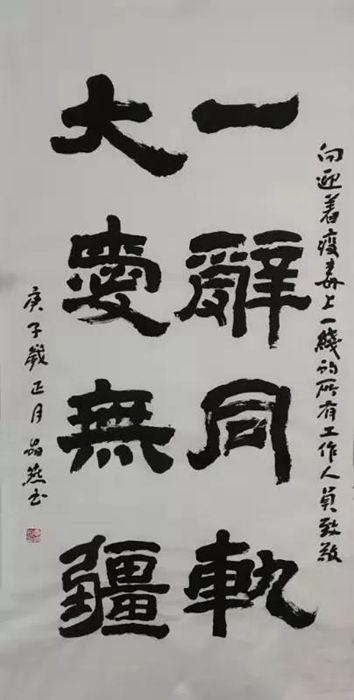 向迎着疫毒上一綫的所有工作人員致敬
一辭同軌
大愛無疆
庚子歲正月晶燕书